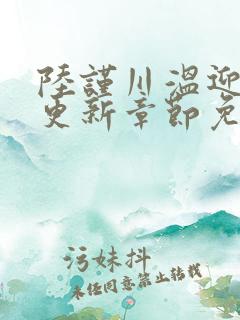 陸謹川溫迎
更新章節免
污妹抖
未经同意禁止转载